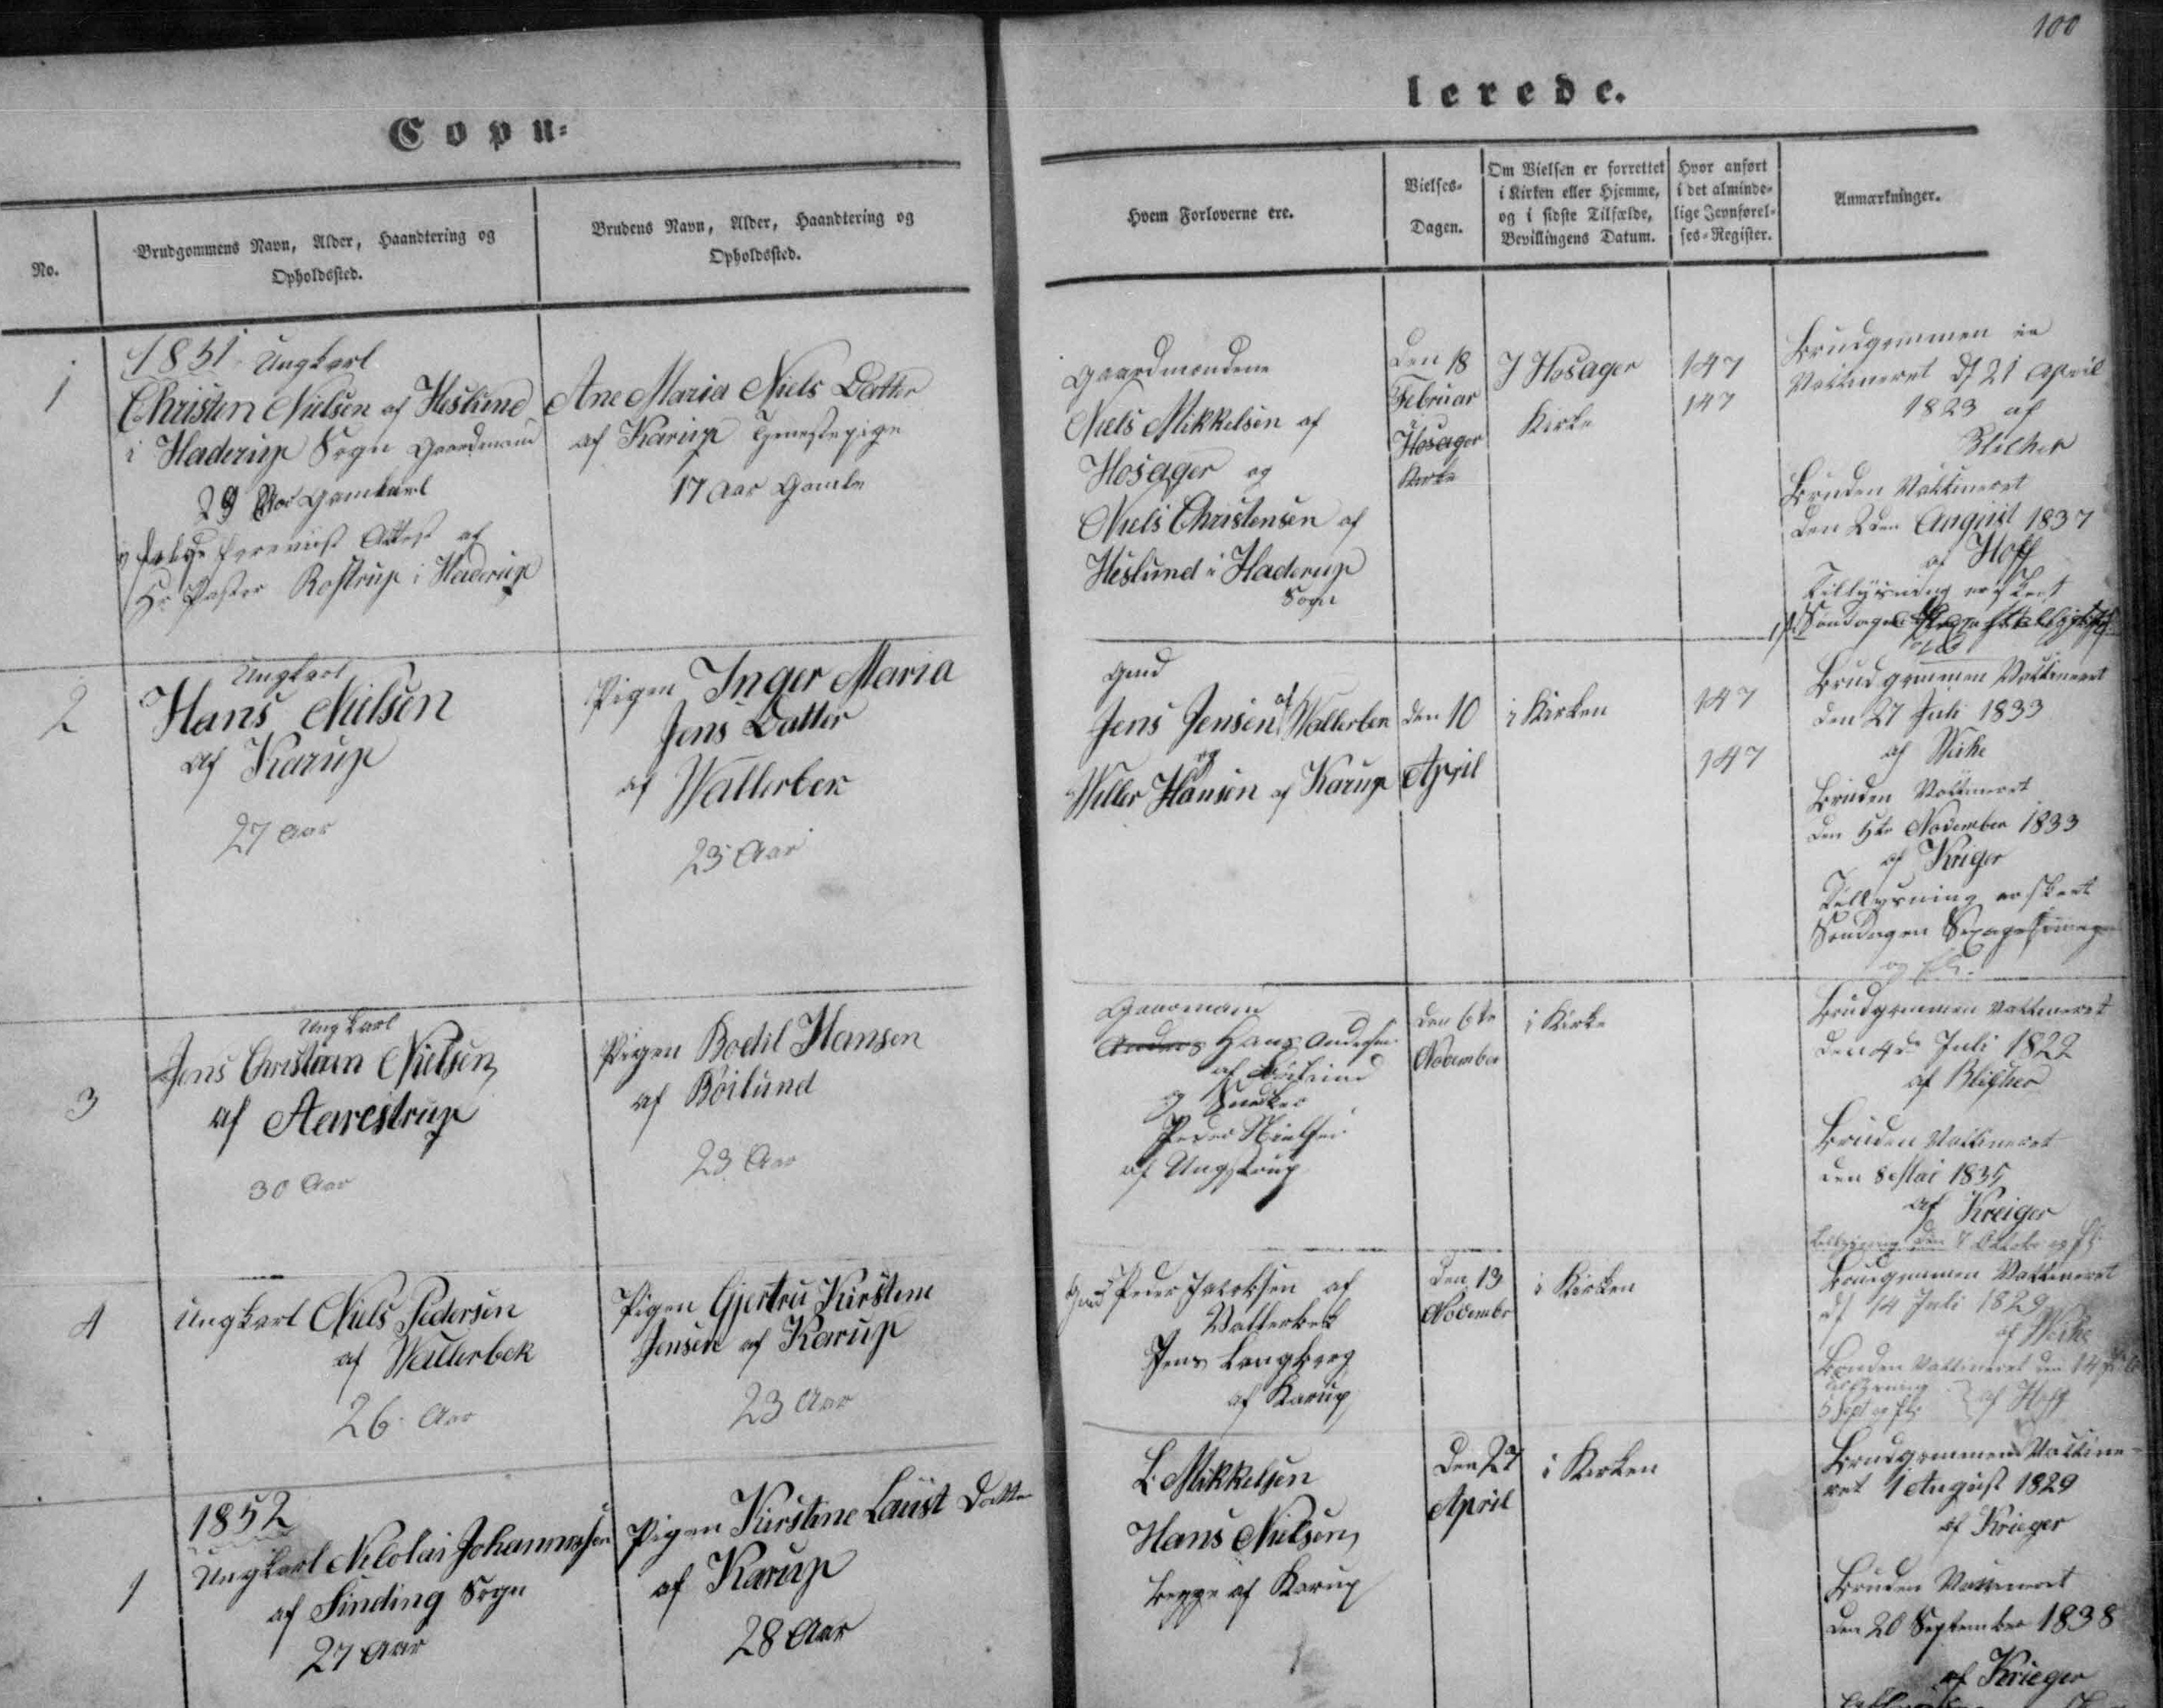 100
Copu=
lerede.
No.
Brudgommens Navn, Alder, Haandtering og
Opholdssted.
Brudens Navn, Alder, Haandtering og
Opholdssted.
Hvem Forloverne ere.
Vielses-
Dagen.
Om Vielsen er forrettet
i Kirken eller Hjemme,
og i sidste Tilfælde,
Bevillingens Datum.
Hvor anført
i det alminde-
lige Jevnførel-
ses-Register.
Anmærkninger.
1
1851 Ungkarl
Christen Nielsen af Heslund
i Haderup Sogn Gaardmand
29 Aar Gammel
Attest af
Hr Pastor Rostrup i Haderup
Ane Maria Niels Datter
af Karup Tjenestepige
17 Aar Gamle
Gaardmændene
Niels Mikkelsen af
Hosager og
Niels Christensen af
Heslund i Haderup
Sogn
Den 18
Februar
i
Hosager
Kirke
I Hosager
Kirke
147
147
Brudgommen er
Vaccineret d 21 April
1823 af
Blicher
Bruden Vaccineret
den 2den August 1837
af Hoff
Tillysning er skeet
Søndagen
2
Ungkarl
Hans Nielsen
af Karup
27 Aar
Pigen Inger Maria
Jens Datter
af Wallerbek
23 Aar
Gmd
Jens Jensen af Wallerbek
og
Weller Hansen af Karup
den 10
April
i Kirken
147
147
Brudgommen Vaccineret
den 27 Juli 1833
af
Bruden Vaccineret
den 5te November 1833
af Kriger
Tillysning er skeet
Søndagen Sexagesima
og fl.
3
Ungkarl
Jens Christian Nielsen
af Aarestrup
30 Aar
Pigen Bodil Hansen
af Böilund
23 Aar
Gaardmand
Anders Hans Andersen
af Böilund
og Snedker
Peder Nielsen
af Ungstrup
den 6te
November
i Kirke
Brudgommen Vaccineret
den 4de Juli 1822
af Blicher
Bruden Vaccineret
den 8 Mai 1835
af Kreiger
4
Ungkarl Niels Pedersen
af Wallerbek
26 Aar
Pigen Gjertru Kirstine
Jensen af Karup
23 Aar
Gmd Peder Jacobsen af
Vallerbek
Jens Langberg
af Karup
den 13
November
i Kirken
Brudgommen Vaccineret
d 14 Juli 1829
Bruden Vaccineret den 14
5 Sept og fl. af Hoff
1
1852
Ungkarl Nicolai Johannessen
af Sinding Sogn
27 Aar
Pigen Kirstine Laust Datter
af Karup
28 Aar
L. Mikkelsen
Hans Nielsen
begge af Karup
Den 27
April
i Kirken
Brudgommen Vaccine=
ret 1 August 1829
af Krieger
Bruden Vaccineret
den 20 September 1838
af Krieger